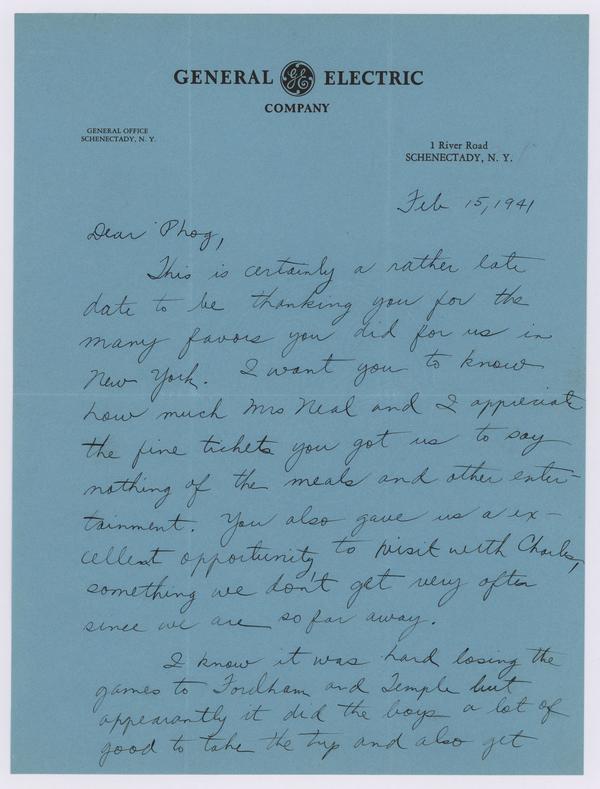 GENERAL GE ELECTRIC
COMPANY
GENERAL OFFICE
SCHENECTADY, N. Y.
1 River Road
SCHENECTADY, N. Y.
Feb 15, 1941
Dear Phog,
This is certainly a rather late
date to be thanking you for the
many favors you did for us in
New York. I want you to know
how much Mrs Neal and I appreciate
the fine tickets you got us to say
nothing of the meals and other enter-
tainment. You also gave us a ex-
cellent opportunity to visit with Charles,
something we don't get very often
since we are so far away.
I know it was hard losing the
games to Fordham and Temple but
appearantly it did the boys a lot of
good to take the trip and also get